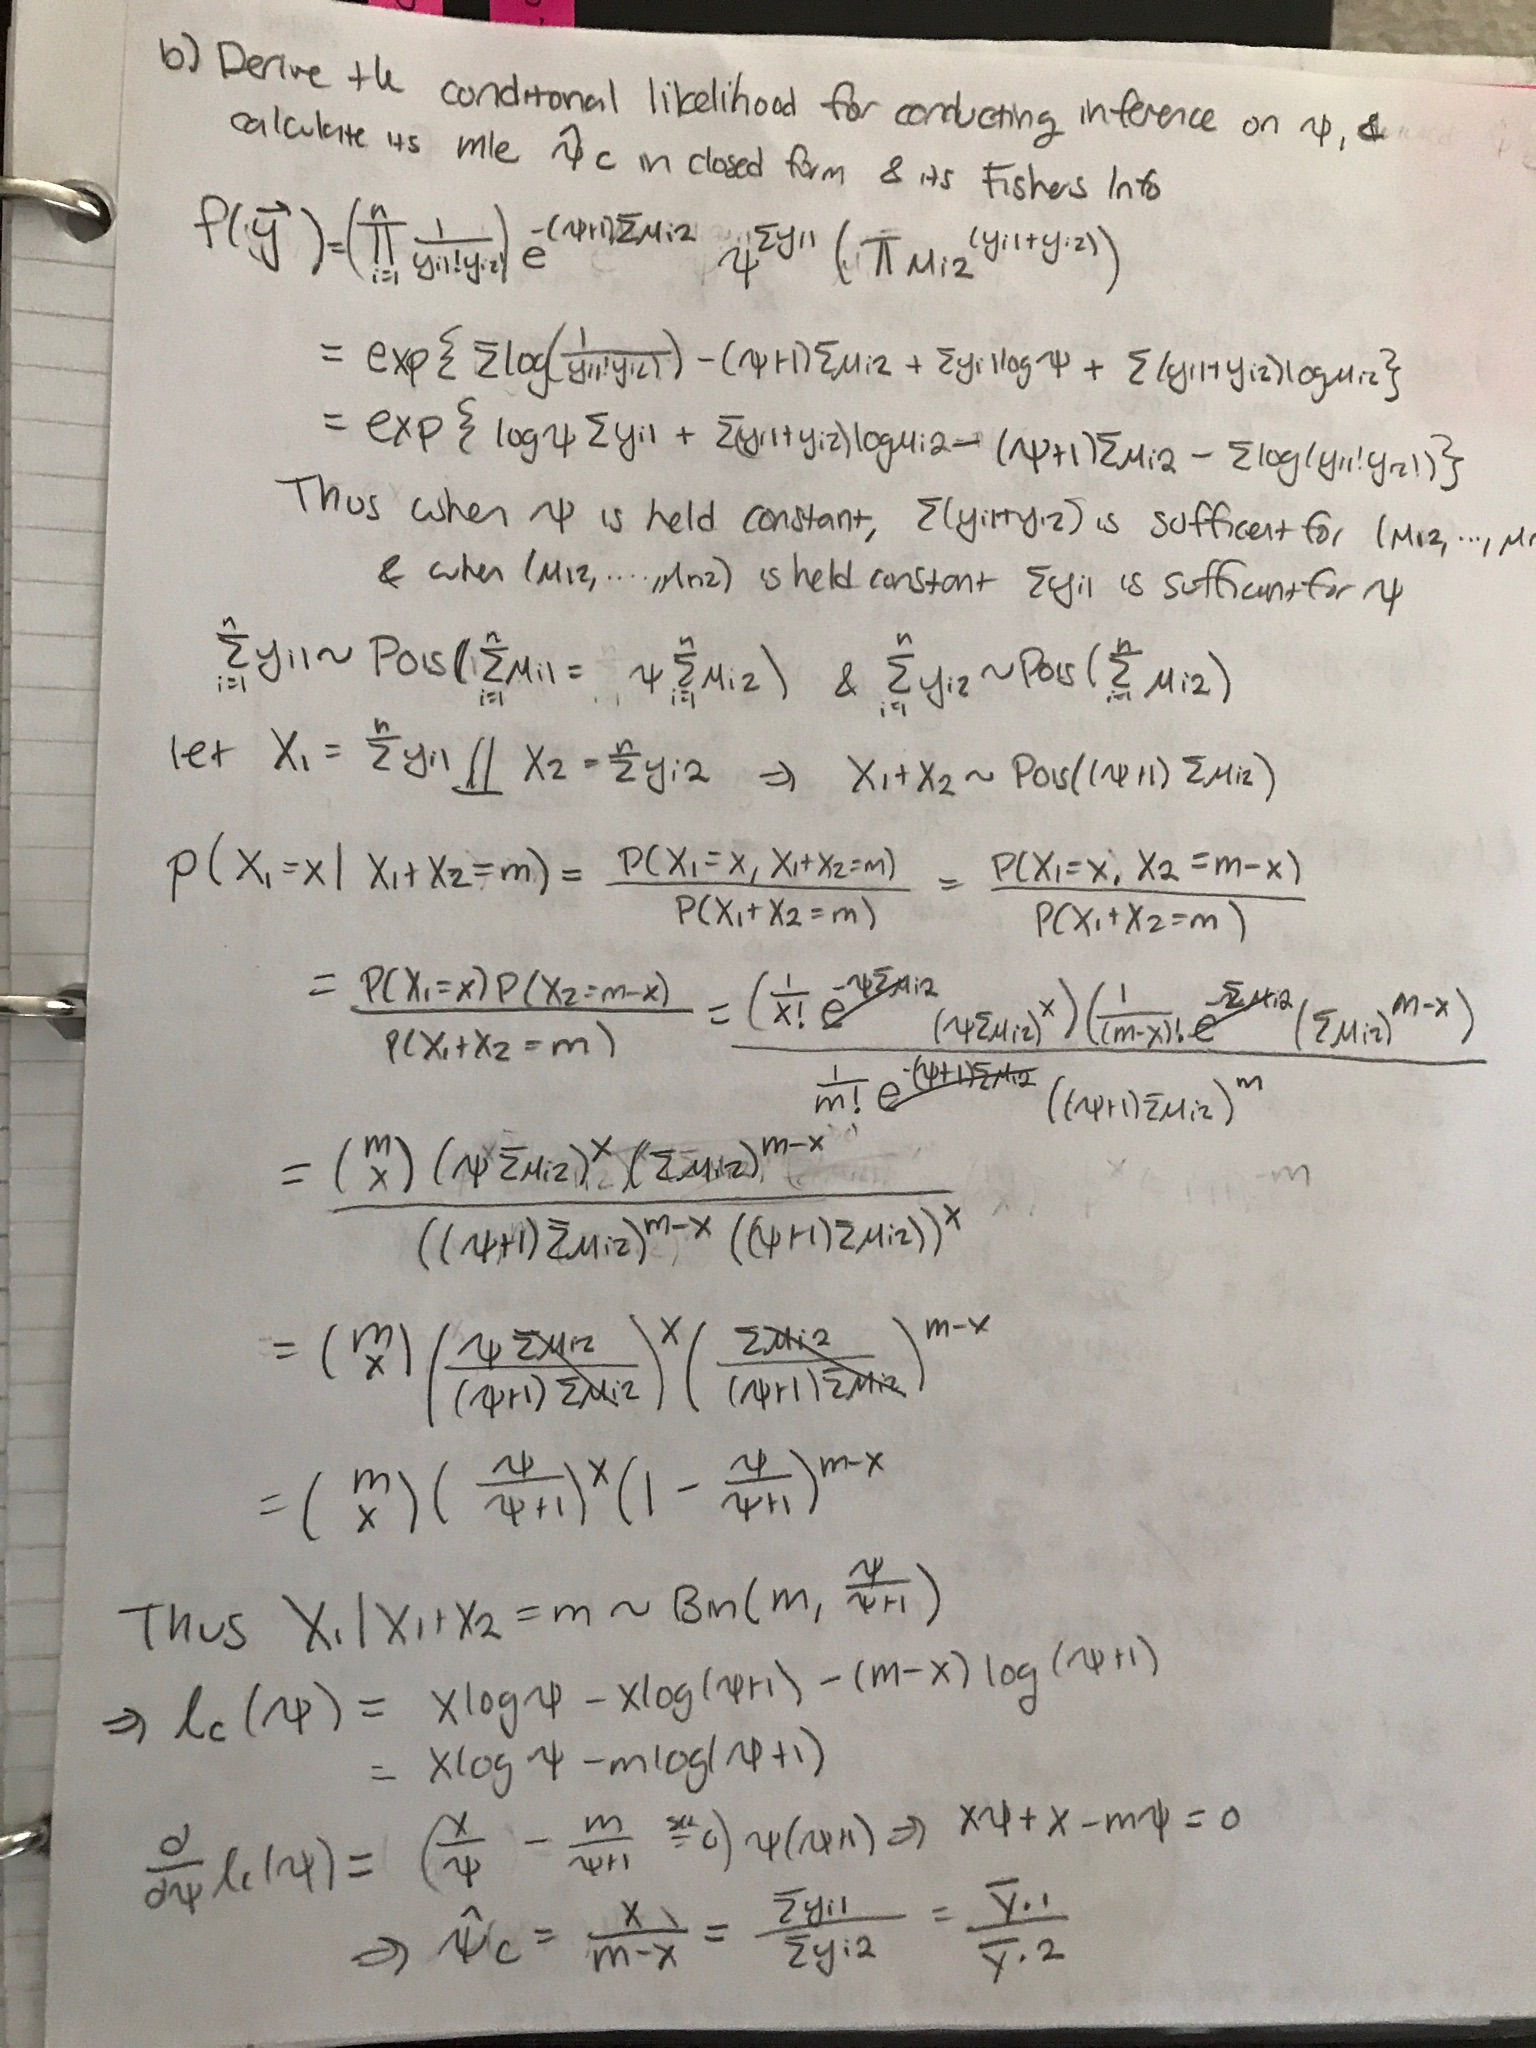 b) Derive the conditional likelihood for conducting inference on ψ, &
calculate its mle ψ̂c in closed form & its Fishers Info
f(y⃗) = (∏_{i=1}^{n} 1/(yi1!yi2!)) e^{-(ψ+1)Σμi2} ψ^{Σyi1} (∏ μi2^{(yi1+yi2)})
= exp{Σlog(1/(yi1!yi2!)) - (ψ+1)Σμi2 + Σyi1logψ + Σ(yi1+yi2)logμi2}
= exp{logψ Σyi1 + Σ(yi1+yi2)logμi2 - (ψ+1)Σμi2 - Σlog(yi1!yi2!)}
Thus when ψ is held constant, Σ(yi1+yi2) is sufficent for (μ12, ..., μn
& when (μ12, ...., μn2) is held constant Σyi1 is sufficient for ψ
Σ_{i=1}^{n} yi1 ~ Pois(Σ_{i=1}^{n} μi1 = ψ Σ_{i=1}^{n} μi2) & Σ_{i=1}^{n} yi2 ~ Pois(Σ_{i=1}^{n} μi2)
let X1 = Σ^{n} yi1 ⫫ X2 = Σ^{n} yi2 ⇒ X1+X2 ~ Pois((ψ+1) Σμi2)
P(X1=x | X1+X2=m) = P(X1=x, X1+X2=m)/P(X1+X2=m) = P(X1=x, X2=m-x)/P(X1+X2=m)
= P(X1=x)P(X2=m-x)/P(X1+X2=m) = (1/x! e^{-ψΣμi2} (ψΣμi2)^x)(1/(m-x)! e^{-Σμi2} (Σμi2)^{m-x})/(1/m! e^{-(ψ+1)Σμi2} ((ψ+1)Σμi2)^m)
= (m x) (ψΣμi2)^x (Σμi2)^{m-x}/(((ψ+1)Σμi2)^{m-x} ((ψ+1)Σμi2))^x
= (m x) (ψΣμi2/((ψ+1)Σμi2))^x (Σμi2/((ψ+1)Σμi2))^{m-x}
= (m x) (ψ/(ψ+1))^x (1 - ψ/(ψ+1))^{m-x}
Thus X1|X1+X2=m ~ Bin(m, ψ/(ψ+1))
⇒ lc(ψ) = xlogψ - xlog(ψ+1) - (m-x)log(ψ+1)
= xlogψ - mlog(ψ+1)
d/dψ lc(ψ) = (x/ψ - m/(ψ+1) = 0) ψ(ψ+1) ⇒ xψ + x - mψ = 0
⇒ ψ̂c = x/(m-x) = Σyi1/Σyi2 = Ȳ.1/Ȳ.2